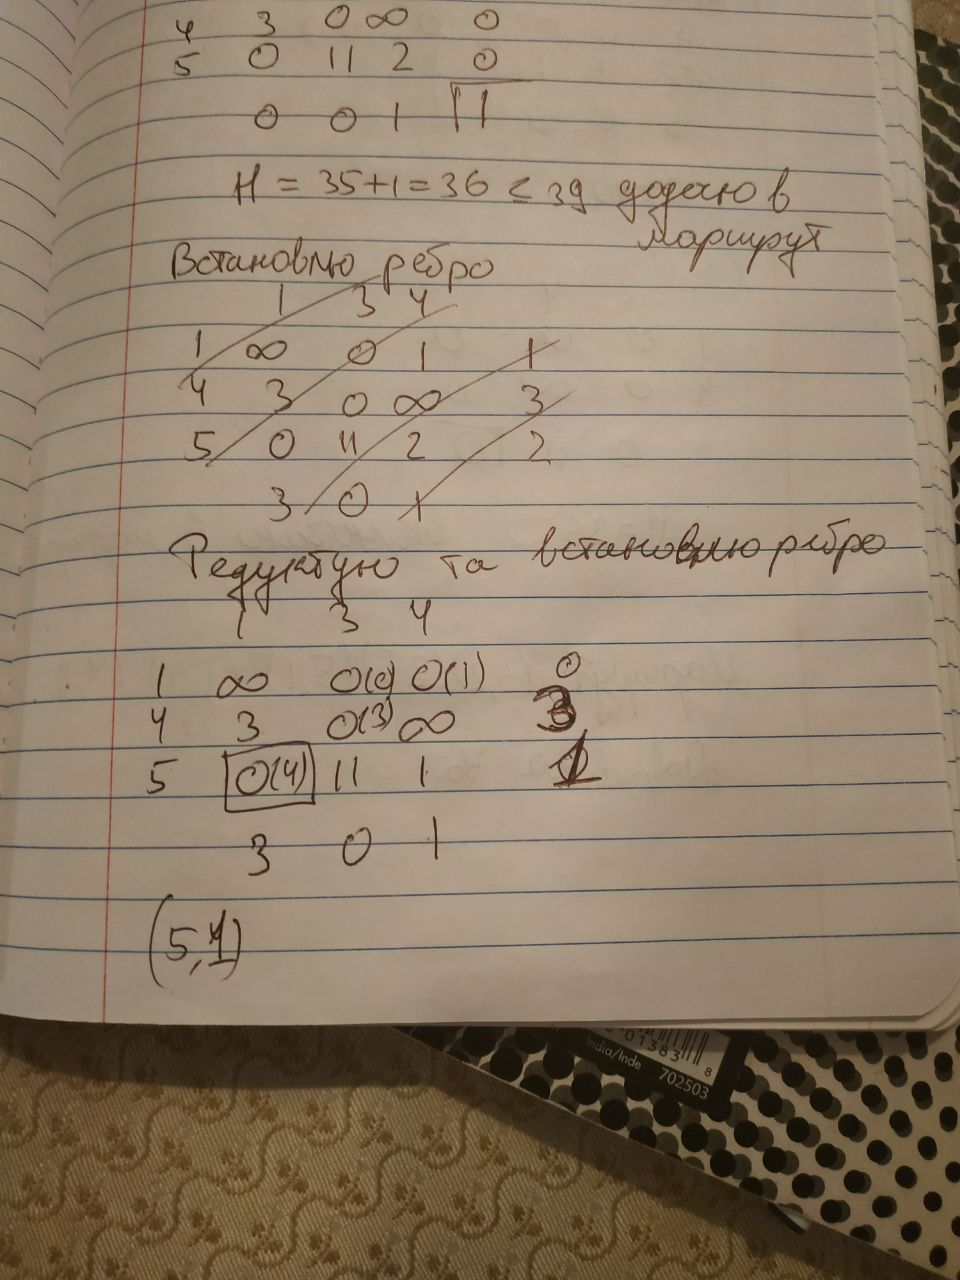 4 3 0 ∞ 0
5 0 11 2 0
0 0 1 1
H = 35+1 = 36 ≤ 39 додаю в
маршрут
Встановлю ребро
1 3 4
1 ∞ 0 1 1
4 3 0 ∞ 3
5 0 11 2 2
3 0 1
Редуктую та встановлю ребро
1 3 4
1 ∞ 0(0) 0(1) 0
4 3 0(3) ∞ 3
5 0(4) 11 1 1
3 0 1
(5,1)
01383 8
India/Inde 702503